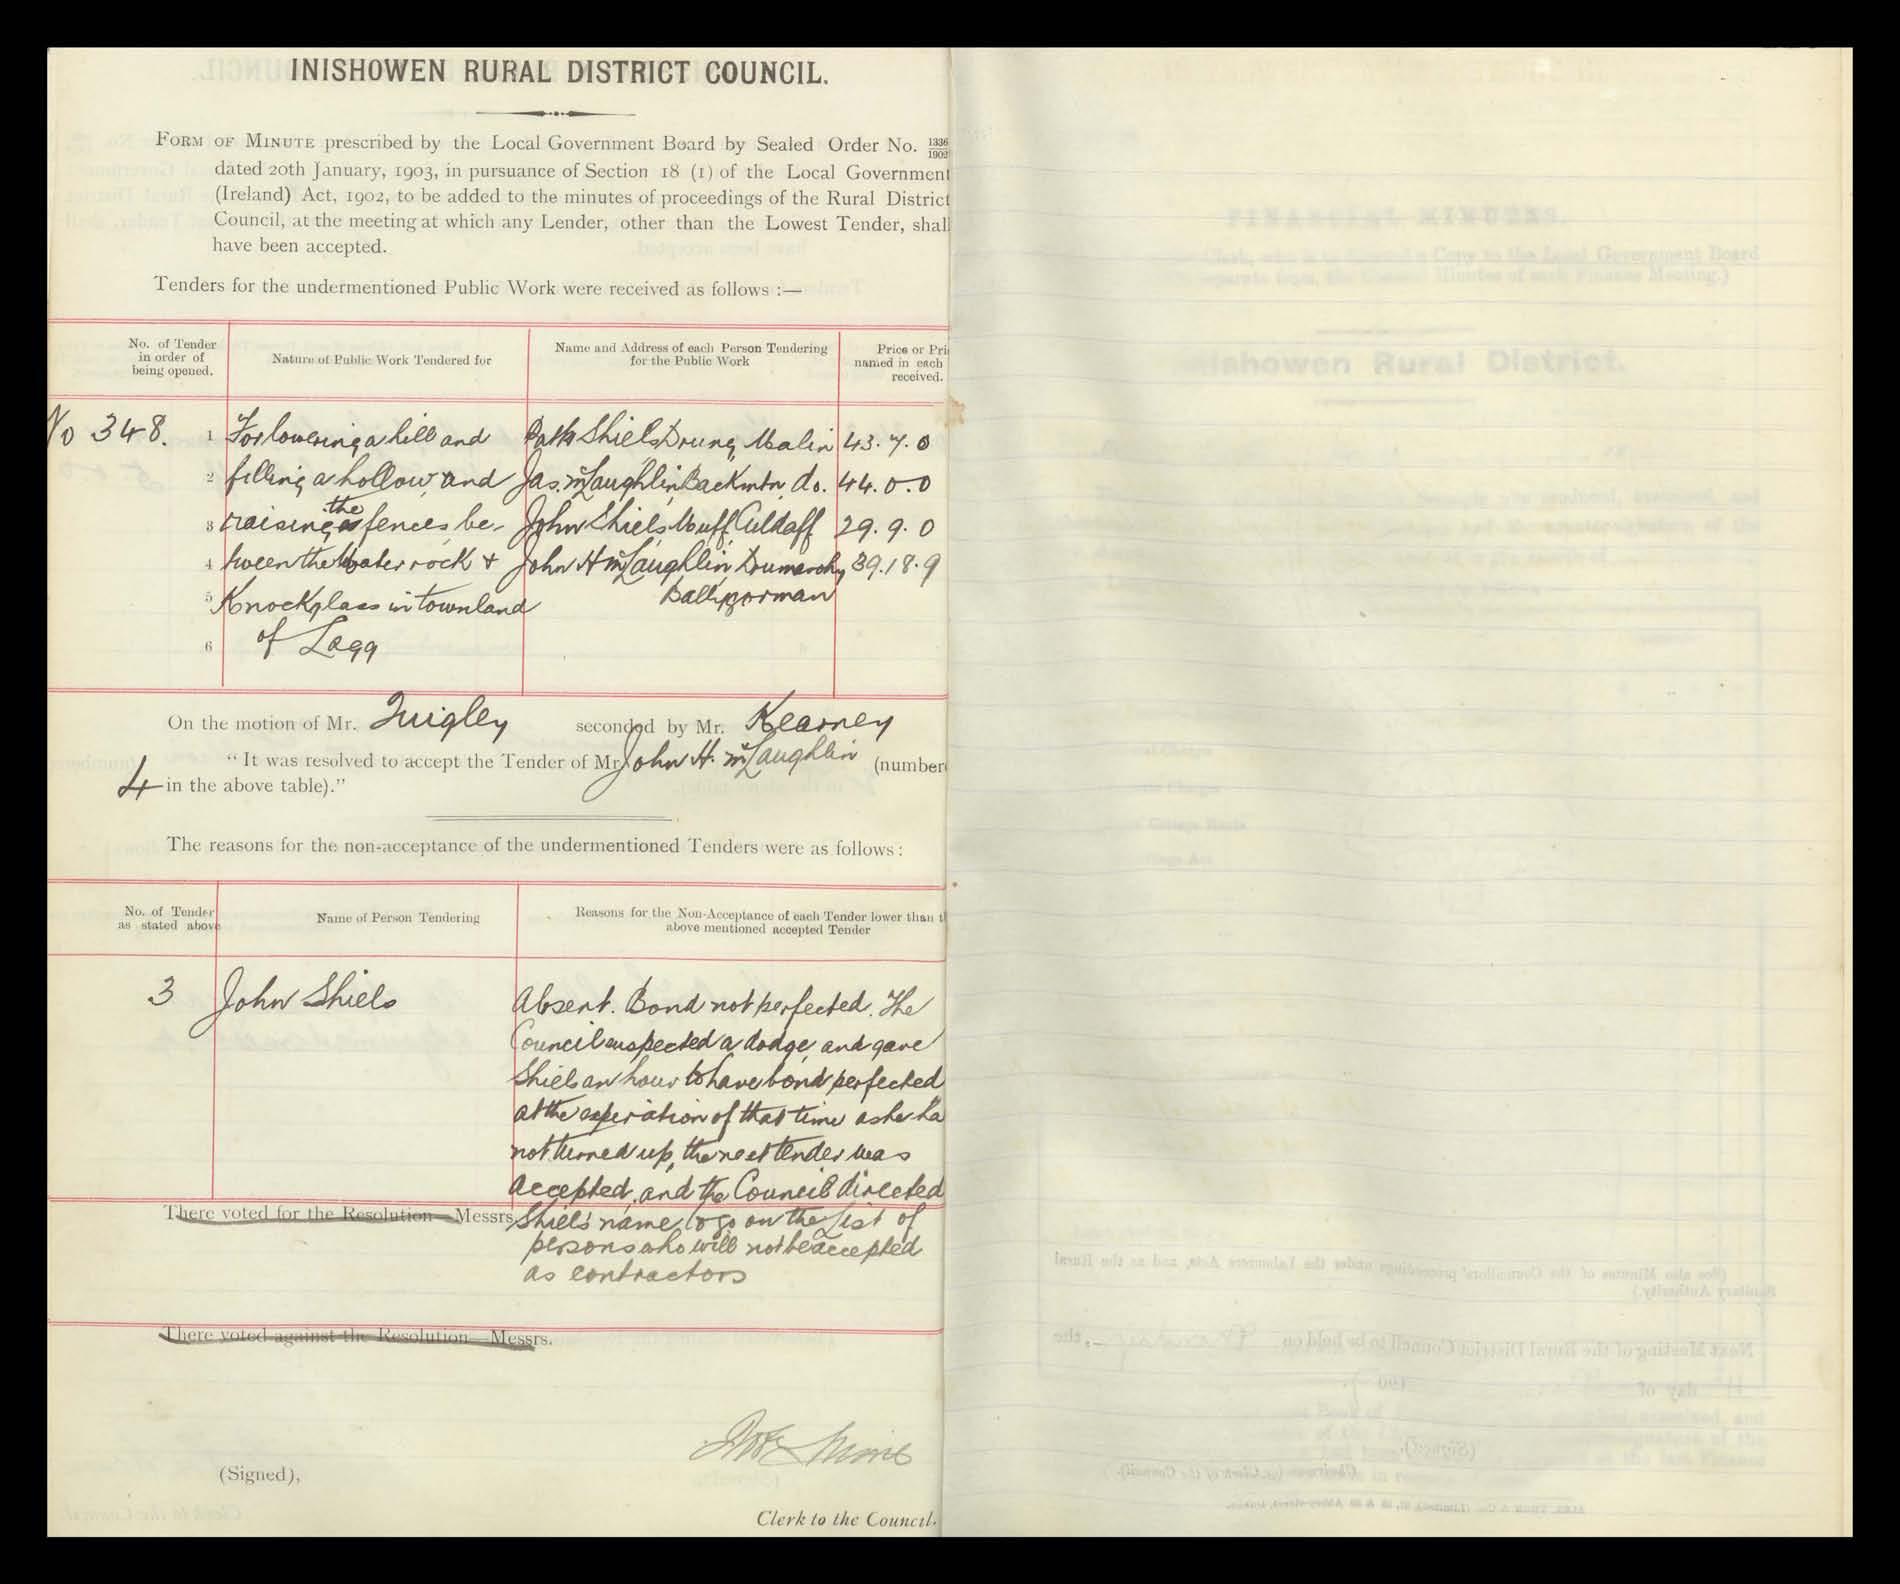 INISHOWEN RURAL DISTRICT COUNCIL.
FORM OF MINUTE prescribed by the Local Government Board by Sealed Order No. 1336/1902
dated 20th January, 1903, in pursuance of Section 18 (1) of the Local Government
(Ireland) Act, 1902, to be added to the minutes of proceedings of the Rural District
Council, at the meeting at which any Lender, other than the Lowest Tender, shall
have been accepted.
Tenders for the undermentioned Public Work were received as follows :—
No. of Tender in order of being opened.
Nature of Public Work Tendered for
Name and Address of each Person Tendering for the Public Work
Price or Pri named in each received.
No 348. 1 For lowering a hill and Patk Shiels Drung, Malin 43.7.0
2 filling a hollow, and Jas. McLaughlin, Backmtn, do. 44.0.0
3 raising the fences be- John Shiels, Muff, Culdaff 29.9.0
4 tween the Water rock & John H McLaughlin, 39.18.9
5 Knockglass in townland Ballygorman
6 of Lagg
On the motion of Mr. Quigley seconded by Mr. Kearney
" It was resolved to accept the Tender of Mr. John H. McLaughlin (number
4 in the above table)."
The reasons for the non-acceptance of the undermentioned Tenders were as follows :
No. of Tender as stated above
Name of Person Tendering
Reasons for the Non-Acceptance of each Tender lower than th above mentioned accepted Tender
3 John Shiels Absent. Bond not perfected. The
Council suspected a dodge, and gave
Shiels an hour to have bond perfected
at the experation of that time as he ha
not turned up, the next tender was
accepted, and the Council directed
There voted for the Resolution—Messrs. Shiels' name to go on the List of
persons who will not be accepted
as contractors
There voted against the Resolution—Messrs.
(Signed),
Clerk to the Council.
FINANCIAL MINUTES.
Inishowen Rural District.
(See also Minutes of the Councillors' proceedings under the Labourers Acts, and as the Rural
Sanitary Authority.)
Next Meeting of the Rural District Council to be held on the
day of 190
(Signed),
Chairman (or Clerk of the Council).